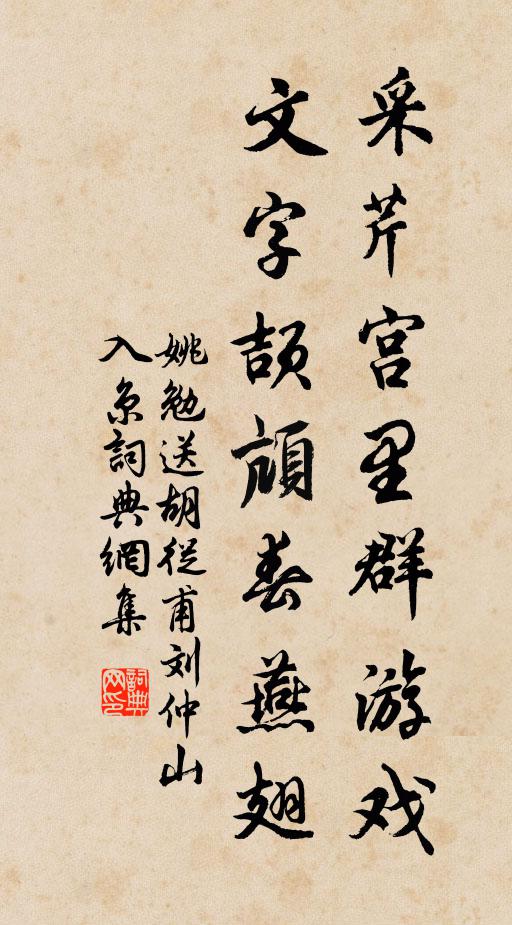 采芹宫里群游戏
文字颉颃春燕翅
姚勉送胡從甫刘仲山
入京詞典網集
詞典
网印